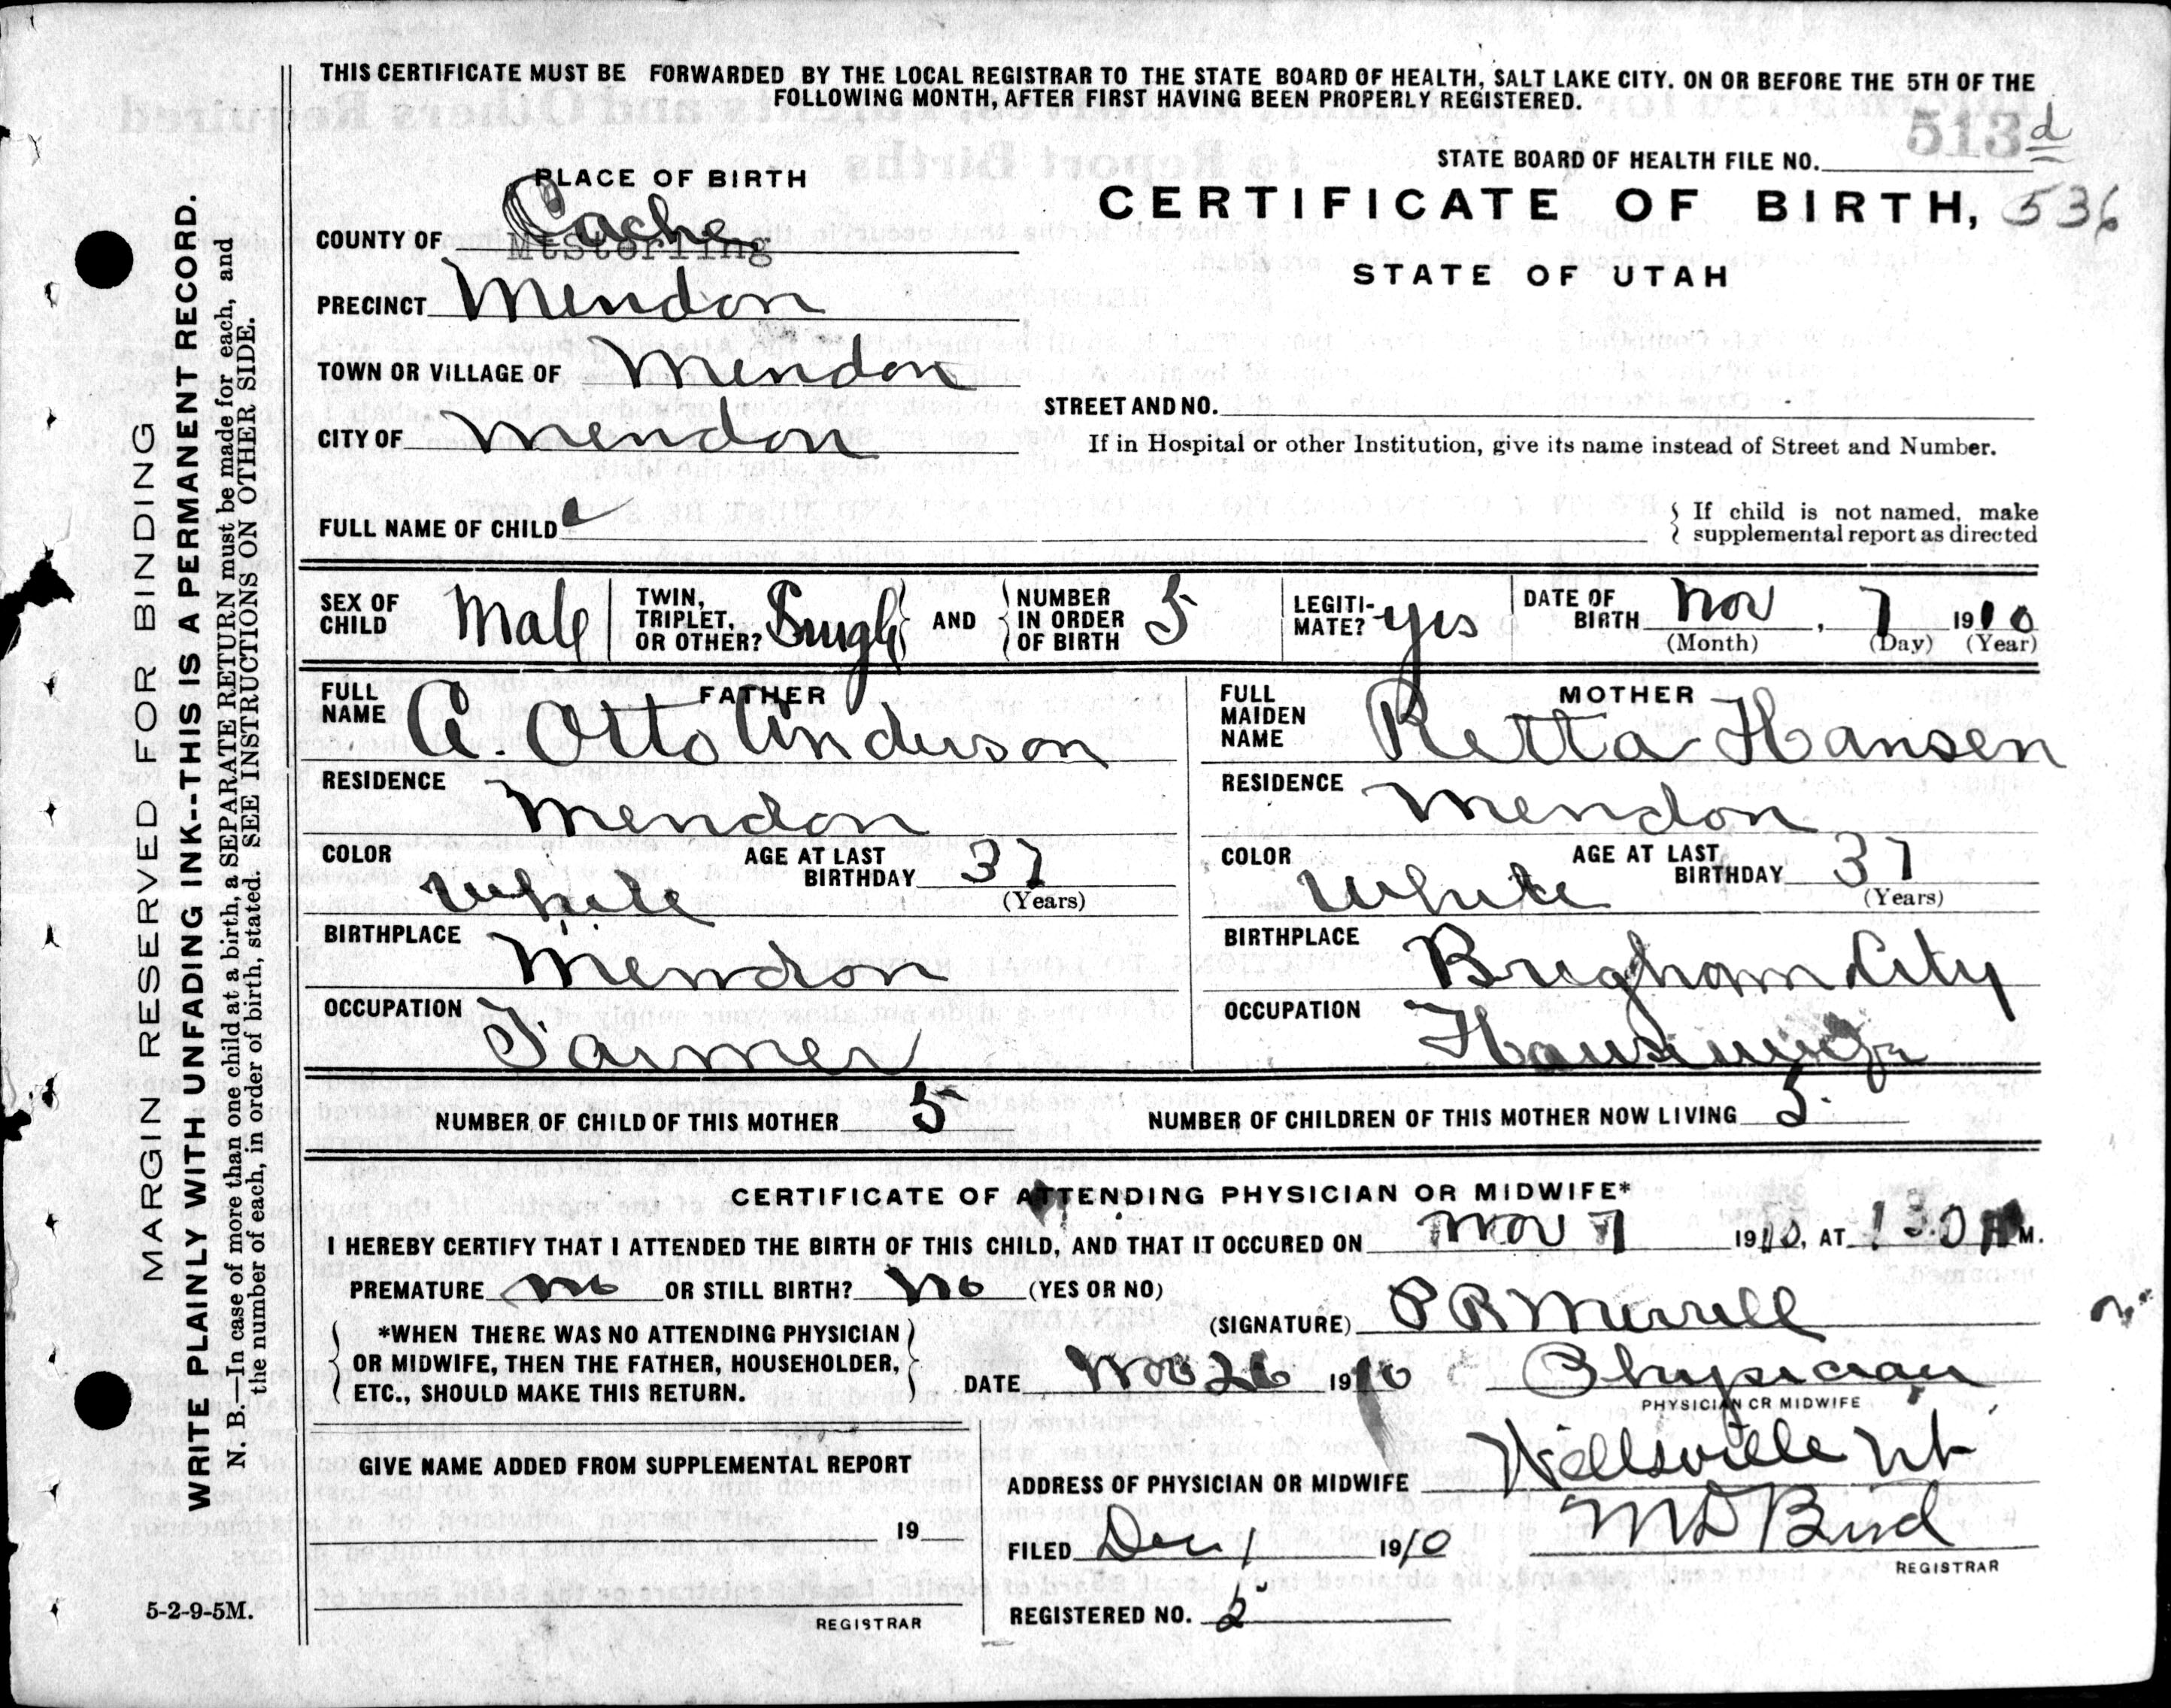 THIS CERTIFICATE MUST BE FORWARDED BY THE LOCAL REGISTRAR TO THE STATE BOARD OF HEALTH, SALT LAKE CITY. ON OR BEFORE THE 5TH OF THE
FOLLOWING MONTH, AFTER FIRST HAVING BEEN PROPERLY REGISTERED.
513 d
STATE BOARD OF HEALTH FILE NO.
PLACE OF BIRTH
CERTIFICATE OF BIRTH, 536
COUNTY OF Cache
MtSterling
STATE OF UTAH
PRECINCT Mendon
TOWN OR VILLAGE OF Mendon
STREET AND NO.
CITY OF Mendon
If in Hospital or other Institution, give its name instead of Street and Number.
FULL NAME OF CHILD
If child is not named, make
supplemental report as directed
SEX OF CHILD Male
TWIN, TRIPLET, OR OTHER? Single AND NUMBER IN ORDER OF BIRTH 5
LEGITI-MATE? yes
DATE OF BIRTH Nov, 7 1910
(Month) (Day) (Year)
FATHER
FULL NAME A. Otto Anderson
MOTHER
FULL MAIDEN NAME Retta Hansen
RESIDENCE Mendon
RESIDENCE Mendon
COLOR White AGE AT LAST BIRTHDAY 37
(Years)
COLOR White AGE AT LAST BIRTHDAY 37
(Years)
BIRTHPLACE Mendon
BIRTHPLACE Brigham City
OCCUPATION Farmer
OCCUPATION Housewife
NUMBER OF CHILD OF THIS MOTHER 5
NUMBER OF CHILDREN OF THIS MOTHER NOW LIVING 5
CERTIFICATE OF ATTENDING PHYSICIAN OR MIDWIFE*
I HEREBY CERTIFY THAT I ATTENDED THE BIRTH OF THIS CHILD, AND THAT IT OCCURED ON Nov 7 1910, AT 130 A M.
PREMATURE no OR STILL BIRTH? No (YES OR NO)
(SIGNATURE) P R Murrell
*WHEN THERE WAS NO ATTENDING PHYSICIAN
OR MIDWIFE, THEN THE FATHER, HOUSEHOLDER,
ETC., SHOULD MAKE THIS RETURN.
DATE Nov 26 1910 Physician
PHYSICIAN OR MIDWIFE
GIVE NAME ADDED FROM SUPPLEMENTAL REPORT
19
REGISTRAR
ADDRESS OF PHYSICIAN OR MIDWIFE Wellsville Ut
FILED Dec 1 1910 M D Bird
REGISTRAR
REGISTERED NO. 5
5-2-9-5M.
MARGIN RESERVED FOR BINDING
WRITE PLAINLY WITH UNFADING INK--THIS IS A PERMANENT RECORD.
N. B.—In case of more than one child at a birth, a SEPARATE RETURN must be made for each, and
the number of each, in order of birth, stated. SEE INSTRUCTIONS ON OTHER SIDE.